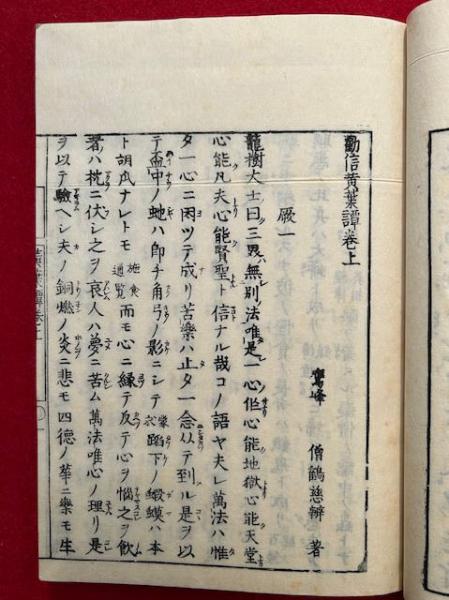 勸信黄葉譚卷上
鷲峰 僧鶴慈辨 著
厥一
龍樹大士曰三界無別法唯是一心作心能地獄心能天堂
心能凡夫心能賢聖ト信ナル哉コノ語ヤ夫レ萬法ハ惟
タ一心ニ因ツテ成リ苦樂ハ止タ一念从テ到ル是ヲ以
テ盃中ノ虵ハ即チ角弓ノ影ニシテ 衆衣 蹈下ノ蝦蟆ハ本
ト胡瓜ナレトモ 施食通覽 而モ心ニ縁テ反テ心ヲ惱之ヲ飲
者ハ枕ニ伏シ之ヲ哀人ハ夢ニ苦ム萬法唯心ノ理リ是
ヲ以テ驗ヘシ夫ノ銅燃ノ炎ニ悲モ四德ノ華ニ樂モ生